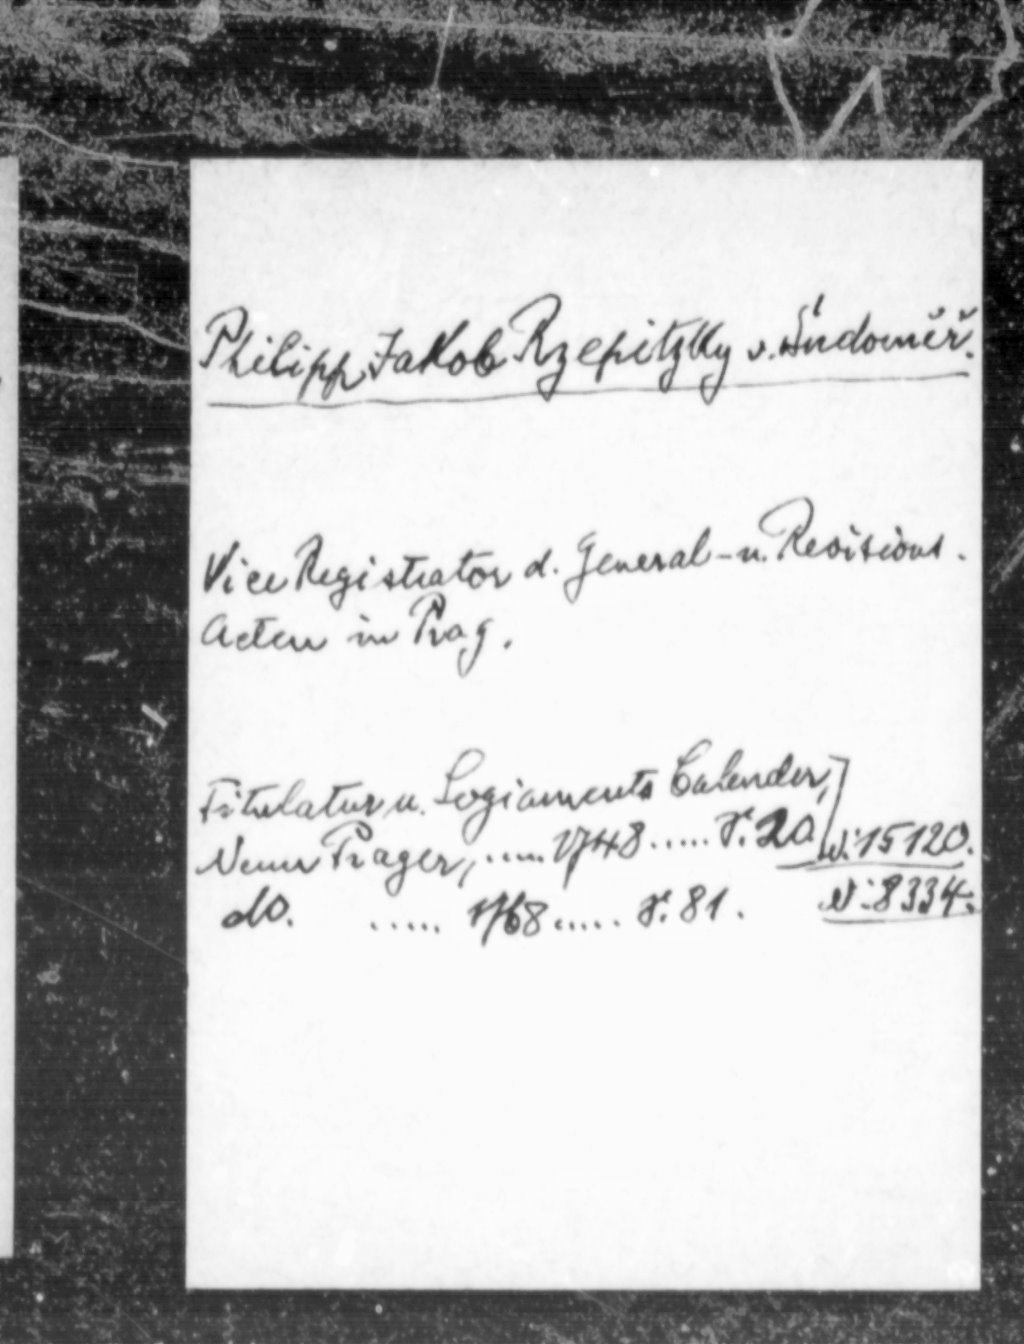 Philipp Jakob Rzepitzky v. Sudoměř.
Vice Registrator d. General- u. Revisions.
Acten in Prag.
Titulatur u. Logiaments Calender,
Neuer Prager, ..... 1748 ..... S. 20. N: 15120.
do. ..... 1768 ..... S. 81. N: 8334.